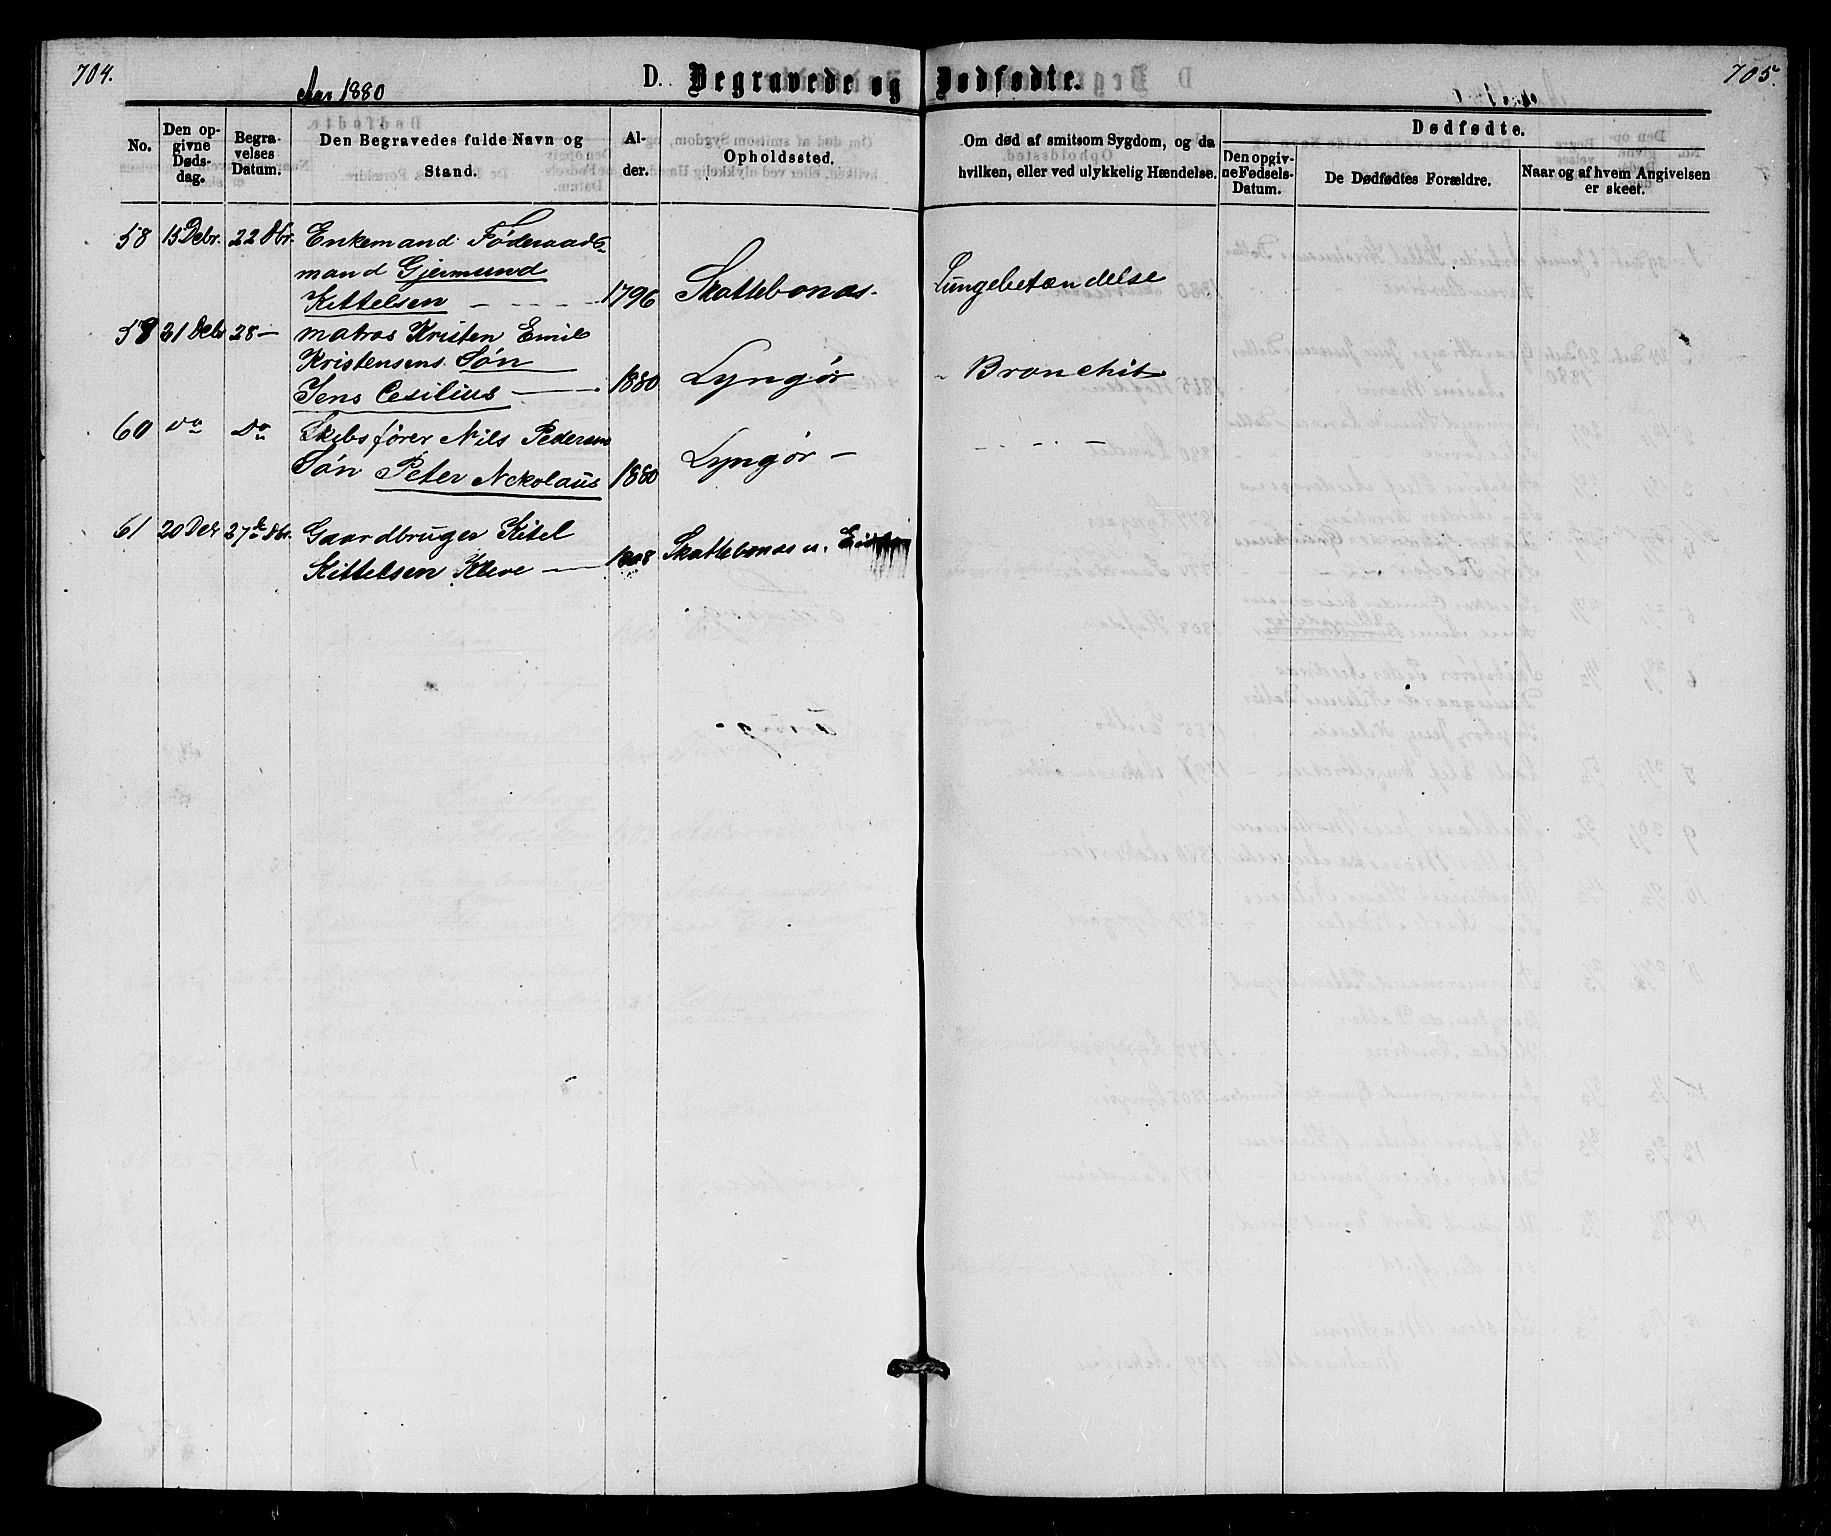 704.
Aar 1880
D. Begravede og Dødfødte.
705.
No.
Den op-
givne
Døds-
dag.
Begra-
velses
Datum.
Den Begravedes fulde Navn og
Stand.
Al-
der.
Opholdssted.
Om død af smitsom Sygdom, og da
hvilken, eller ved ulykkelig Hændelse.
Dødfødte.
Den opgiv-
ne Fødsels-
Datum.
De Dødfødtes Forældre.
Naar og af hvem Angivelsen
er skeet.
58 15 Debr. 22 Dbr. Enkemand Föderaads-
mand Gjermund
Kittelsen 1796 Skattebonæs. Lungebetændelse
58 21 Debr 28 — matros Kristen Emil
Kristensens Søn
Jens Cesilius — 1880 Lyngør Bronchit
60 do Do Skibsfører Nils Pedersen
Søn Peter Nekolaus 1880 Lyngør —
61 20 Debr 27de Dbr. Gaardbruger Kitel
Kittelsen Kleve — 1808 Skattebonæs u.